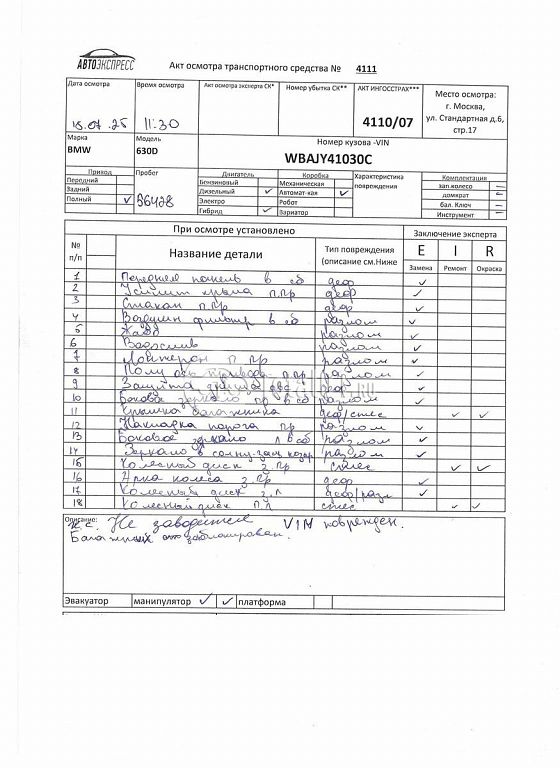 АВТОЭКСПРЕСС
Акт осмотра транспортного средства № 4111
Дата осмотра
Время осмотра
Акт осмотра эксперта СК*
Номер убытка СК**
АКТ ИНГОССТРАХ***
Место осмотра:
г. Москва,
ул. Стандартная д.6,
стр.17
15.07.25
11:30
4110/07
Марка
Модель
Номер кузова -VIN
BMW
630D
WBAJY41030C
Приход
Пробег
Двигатель
Коробка
Характеристика повреждения
Комплектация
Передний
Бензиновый
Механическая
зап.колесо –
Задний
Дизельный ✓
Автомат-кая ✓
домкрат
Полный ✓
36478
Электро
Робот
бал. Ключ –
Гибрид ✓
Зариатор
Инструмент –
При осмотре установлено
Заключение эксперта
№ п/п
Название детали
Тип повреждения (описание см.Ниже
E I R
Замена Ремонт Окраска
1 Передняя панель в сб деф ✓
2 Усилит крыла п.пр деф ✓
3 Стакан п.пр деф ✓
4 Воздушн фильтр в сб разлом ✓
5 Жабо разлом ✓
6 Водослив разлом ✓
7 Лонжерон п пр разлом ✓
8 Полу ось привода п.пр разлом ✓
9 Защита днища деф ✓
10 Боковое зеркало пр в сб разлом ✓
11 Крышка багажника деф/стес ✓ ✓
12 Накладка порога пр разлом ✓
13 Боковое зеркало л в сб разлом ✓
14 Зеркало в солнц. разлом ✓
15 Колесный диск з.пр стес ✓ ✓
16 Арка колеса з.пр деф ✓
17 Колесный диск з.л деф/разл ✓
18 Колесный диск п.л стес ✓ ✓
Описание:
Не заводится VIN поврежден.
Багажник заблокирован.
Эвакуатор манипулятор ✓ ✓ платформа